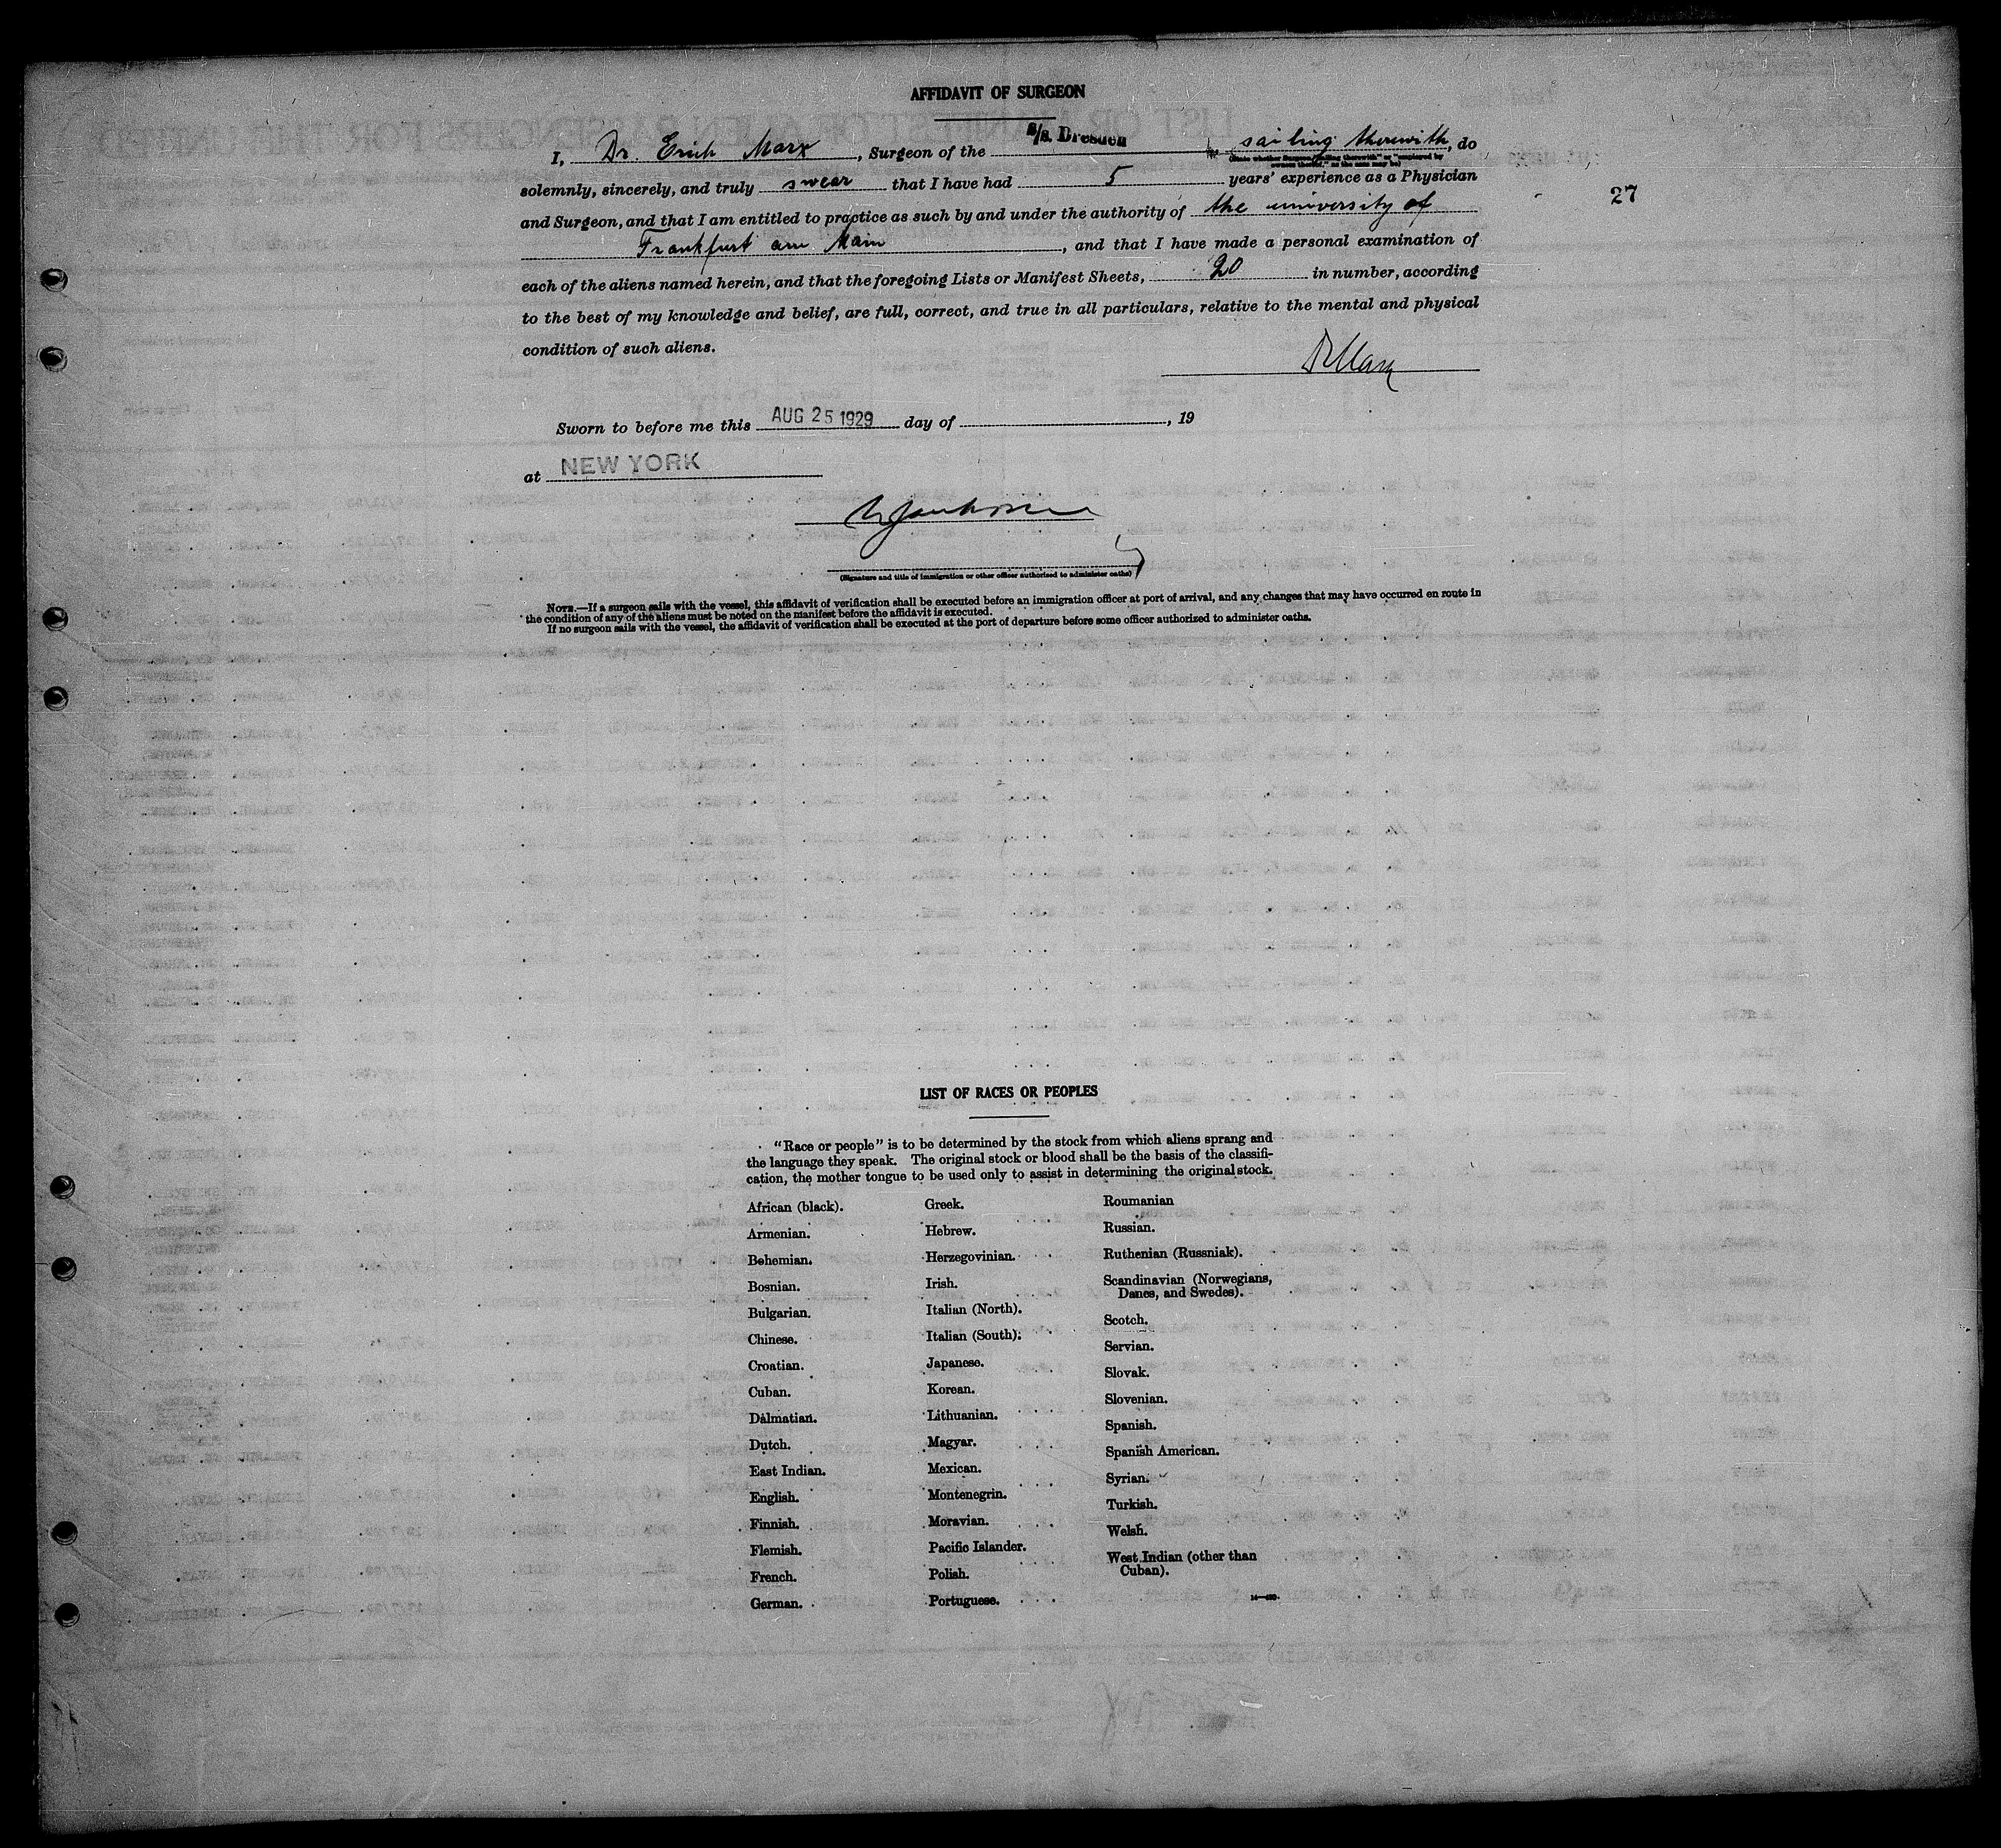 AFFIDAVIT OF SURGEON
I, Dr. Erich Marx, Surgeon of the S/S. Dresden sailing therewith, do
(State whether Surgeon "sailing therewith" or "employed by
owners thereof," as the case may be)
solemnly, sincerely, and truly swear that I have had 5 years' experience as a Physician
27
and Surgeon, and that I am entitled to practice as such by and under the authority of the university of
Frankfurt am Main, and that I have made a personal examination of
each of the aliens named herein, and that the foregoing Lists or Manifest Sheets, 20 in number, according
to the best of my knowledge and belief, are full, correct, and true in all particulars, relative to the mental and physical
condition of such aliens.
Sworn to before me this AUG 25 1929 day of , 19
at NEW YORK
(Signature and title of immigration or other officer authorized to administer oaths)
NOTE.—If a surgeon sails with the vessel, this affidavit of verification shall be executed before an immigration officer at port of arrival, and any changes that may have occurred en route in
the condition of any of the aliens must be noted on the manifest before the affidavit is executed.
If no surgeon sails with the vessel, the affidavit of verification shall be executed at the port of departure before some officer authorized to administer oaths.
LIST OF RACES OR PEOPLES
"Race or people" is to be determined by the stock from which aliens sprang and
the language they speak. The original stock or blood shall be the basis of the classifi-
cation, the mother tongue to be used only to assist in determining the original stock.
African (black).
Armenian.
Bohemian.
Bosnian.
Bulgarian.
Chinese.
Croatian.
Cuban.
Dalmatian.
Dutch.
East Indian.
English.
Finnish.
Flemish.
French.
German.
Greek.
Hebrew.
Herzegovinian.
Irish.
Italian (North).
Italian (South).
Japanese.
Korean.
Lithuanian.
Magyar.
Mexican.
Montenegrin.
Moravian.
Pacific Islander.
Polish.
Portuguese.
Roumanian
Russian.
Ruthenian (Russniak).
Scandinavian (Norwegians,
Danes, and Swedes).
Scotch.
Servian.
Slovak.
Slovenian.
Spanish.
Spanish American.
Syrian.
Turkish.
Welsh.
West Indian (other than
Cuban).